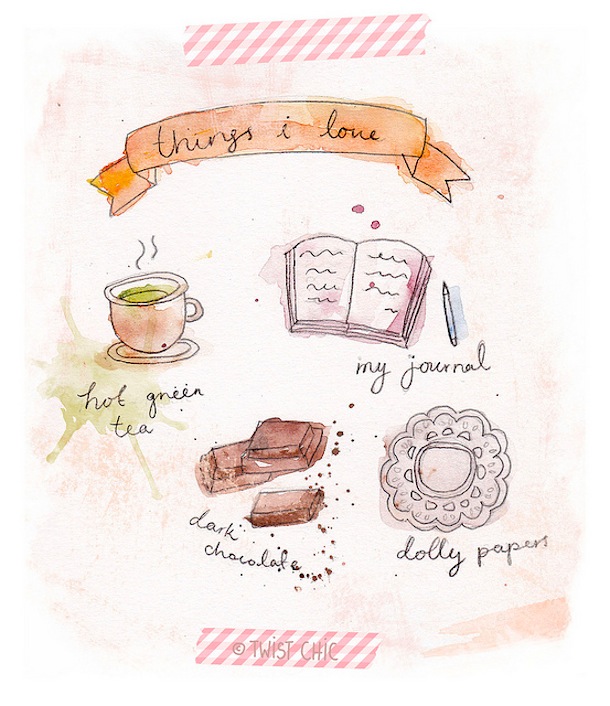 things i love
hot green
tea
my journal
dark
chocolate
dolly papers
© TWIST CHIC